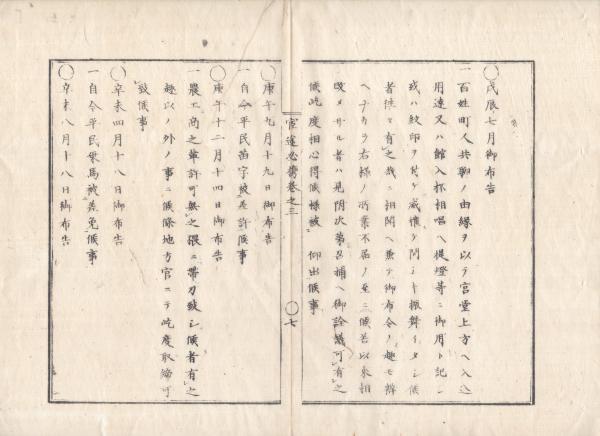 ○戊辰七月御布告
一百姓町人共聊ノ由緒ヲ以テ宮堂上方ヘ入込
用達又ハ館入抔相唱ヘ提燈等ニ御用ト記シ
或ハ紋印ヲ付ケ威権ケ間シキ振舞イタシ候
者往々有之哉ニ相聞ヘ兼テ御布令ノ趣モ辨
ヘナカラ右様ノ所業不届ノ至ニ候若以来相
改メサル者ハ見附次第召捕ヘ御詮議可有之
候屹度相心得候様被 仰出候事
官途必携巻之三
○七
○庚午九月十九日御布告
一自今平民苗字被差許候事
○庚午十二月十四日御布告
一農工商之輩許可無之猥ニ帯刀致シ候者有之
趣以ノ外ノ事ニ候條地方官ニテ屹度取締可
致候事
○辛未四月十八日御布告
一自今平民乗馬被差免候事
○辛未八月十八日御布告